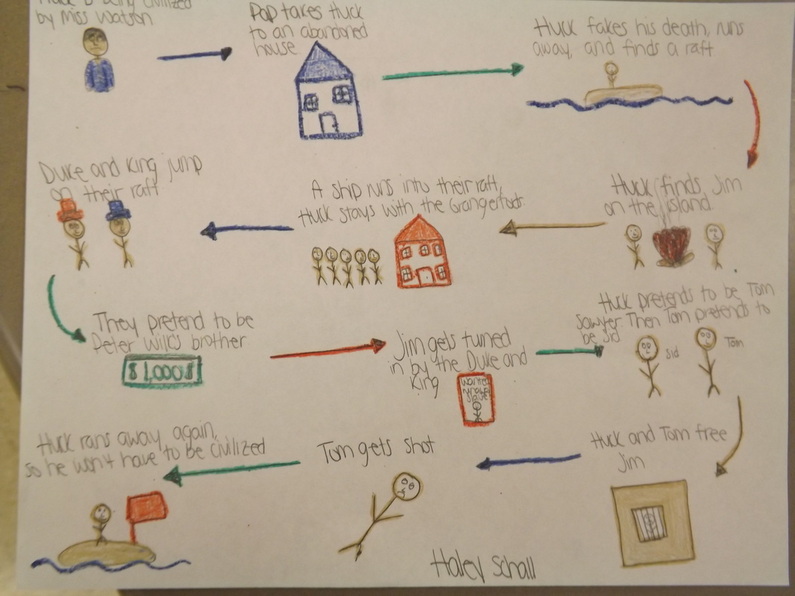 Huck is being civilized
by Miss Watson
Pap takes Huck
to an abandoned
house
Huck fakes his death, runs
away, and finds a raft
Huck finds Jim
on the island
A ship runs into their raft,
Huck stays with the Grangerfords
Duke and King jump
on their raft
They pretend to be
Peter Wilks brother
$1,000$
Jim gets turned
in by the Duke and
King
Wanted
Huck pretends to be Tom
Sawyer. Then Tom pretends to
be Sid
Sid
Tom
Huck and Tom free
Jim
Tom gets shot
Huck runs away again,
so he won't have to be civilized
Haley Schall